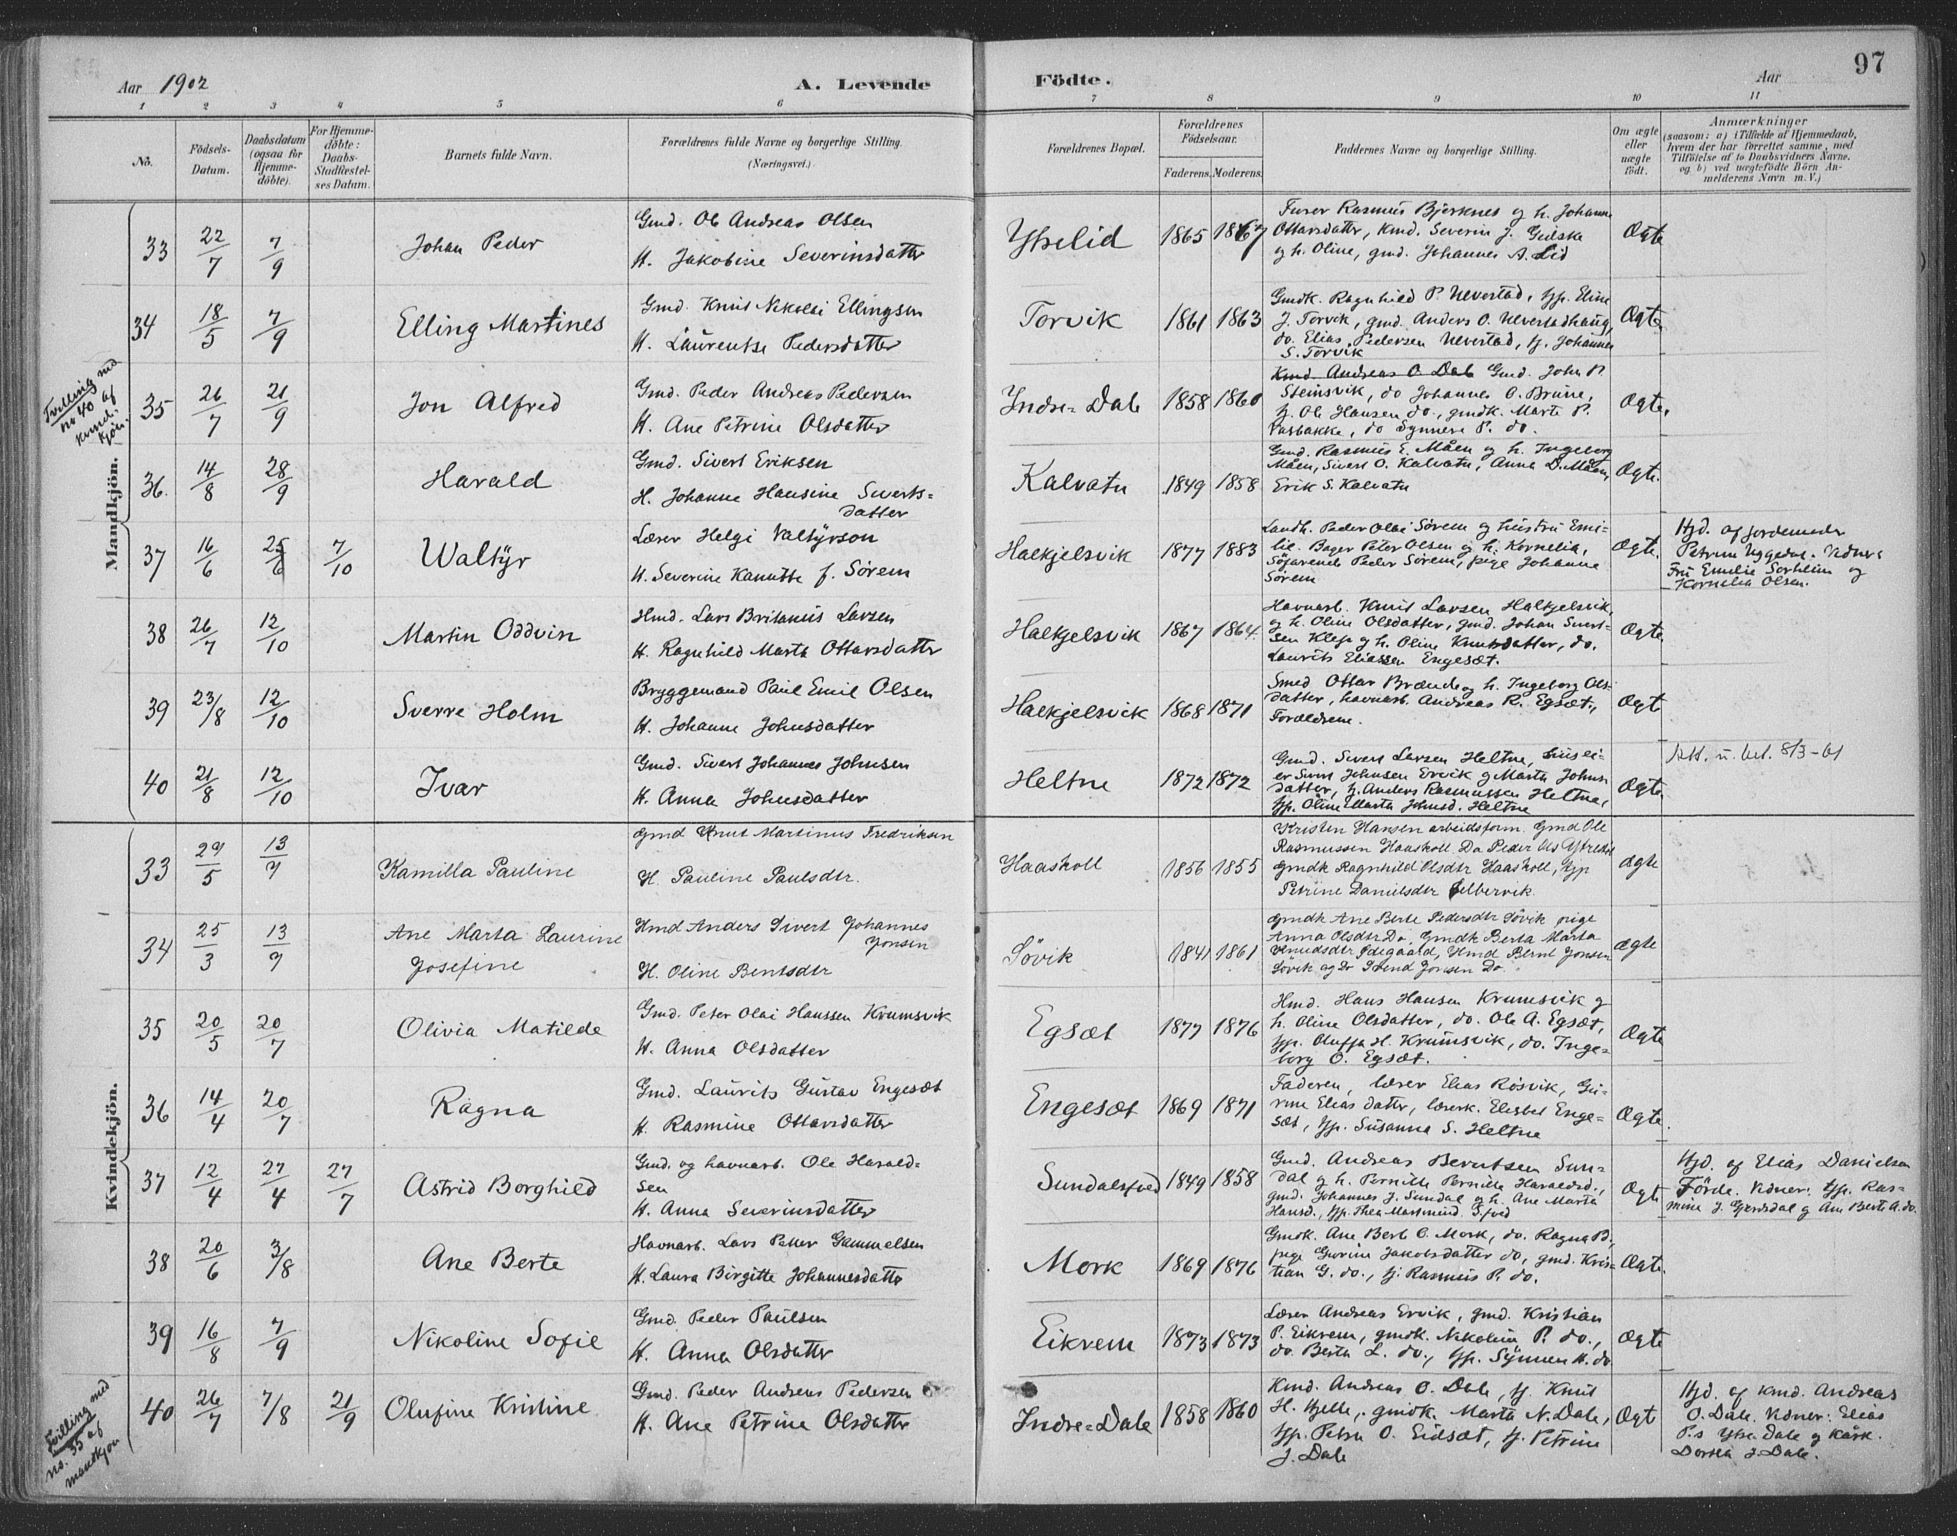 97
Aar 1902
A. Levende
Födte.
Aar
1 2 3 4 5 6 7 8 9 10 11
No.
Födsels-
Datum.
Daabsdatum
(ogsaa for
Hjemme-
döbte).
For Hjemme-
döbte:
Daabs-
Stadfæstel-
ses Datum.
Barnets fulde Navn.
Forældrenes fulde Navne og borgerlige Stilling.
(Næringsvei.)
Forældrenes Bopæl.
Forældrenes
Födselsaar.
Faderens. Moderens.
Faddernes Navne og borgerlige Stilling.
Om ægte
eller
uægte
født.
Anmærkninger
(saasom: a) i Tilfælde af Hjemmedaab,
hvem der har forrettet samme, med
Tilföielse af to Daabsvidners Navne.
og b) ved uægtefödte Börn An-
melderens Navn m. V.)
Mandkjön.
33 22/7 7/9 Johan Peder
Gmd. Ole Andreas Olsen
H. Jakobine Severinsdatter
Ytrelid 1865 1867
Furer Rasmus Bjerknes og h. Johanne
Ottarsdatter, kmd. Severin J. Geiske
og h. Oline, gmd. Johannes A. Lid
Ægte
34 18/5 7/9 Elling Martines
Gmd. Knut Nikolai Ellingsen
H. Laurentse Pedersdatter
Torvik 1861 1863
Gmdk. Ragnhild P. Ulvestad, yp. Eline
J. Torvik, gmd. Anders O. Ulvestadhaug,
do. Elias Pedersen Ulvestad, y. Johannes
S. Torvik
Ægte
Tvilling med
no 40 af
kvind.
kjön.
35 26/7 21/9 Jon Alfred
Gmd. Peder Andreas Pedersen
H. Ane Petrine Olsdatter
Indre-Dale 1858 1860
Kmd. Andreas O Dale Gmd. John P.
Steinsvik, do Johannes O. Brune,
y. Ole Hansen do., gmdk. Marte P.
do Synnøve P. do.
Ægte.
36. 14/8 28/9 Harald
Gmd. Sivert Eriksen
H. Johanne Hansine Siverts-
datter
Kalvatn 1849 1858
Gmd. Rasmus E. Måen og h. Ingeborg
Måen, Sivert O. Kalvatn, Anna D. Måen,
Erik S. Kalvatn
Ægte.
37 16/6 25/6 7/10 Waltýr
Lærer Helgi Valtýrson
H. Severine Kanutte f. Sørem
Halkjelsvik 1877 1883
Landh. Peder Olai Sørem og hustru Emi-
lie. Bager Peter Olsen og h. Kornelia,
Peder Sørem, pige Johanne
Sørem
Ægte.
Hjd. af jordemoder
Petrine Uggedal. Vidner:
Fru Emilie Sorheim og
Kornelia Olsen.
38 26/7 12/10 Martin Oddvin
Hmd. Lars Britanus Larsen
H. Ragnhild Marta Ottarsdatter
Halkjelsvik 1867 1864.
Havnarb. Knut Larsen Halkjelsvik,
og h. Oline Olsdatter, gmd. Johan Sivert-
sen Klep og h. Oline Knutsdatter, do.
Laurits Eliassen Engeset.
Ægte
39 23/8 12/10 Sverre Holm
Bryggemand Paul Emil Olsen
H. Johanne Johnsdatter
Halkjelsvik 1868 1871
Smed Ottar Brænde og h. Ingeborg Ols-
datter, havnarb. Andreas R. Egsæt,
Forældrene.
Ægte
40 21/8 12/10 Ivar
Gmd. Sivert Johannes Johnsen
H. Anna Johnsdatter
Heltne 1872 1872
Gmd. Sivert Larsen Heltne, husei-
er Sivert Johnsen Ervik og Marta Johns-
datter, y. Anders Rasmussen Heltne,
yp. Oline Marta Johnsd. Heltne
Ægte.
Att. u. bet. 8/3-61
Kvindekjön.
33 29/5 13/9 Kamilla Pauline
Gmd Knut Martinus Fredriksen
H. Pauline Paulsdtr.
Haaskoll 1856 1855
Kristen Hansen arbeidsform. Gmd Ole
Rasmussen Haaskoll. Do Peder Ols Ytrelid
Gmdk Ragnhild Olsdtr Haaskoll, yp
Petrine Danielsdtr
ægte
34 25/3 13/9 Ane Marta Laurine
Josefine
Hmd Anders Sivert Johannes
Jonsen
H. Oline Bentsdtr
Søvik 1841 1861
Gmdk Ane Berte Pedersdtr Søvik pige
Anna Olsdtr Do, Gmdk Berta Marta
Knudsdtr Ødegaard, Hmd Bernt Jonsen
Søvik og Dr Svend Jonsen Do
ægte
35 20/5 20/7 Olivia Matilde
Gmd. Peter Olai Hanssen Krumsvik
H. Anna Olsdatter
Egsæt 1877 1876
Hmd. Hans Hansen Krumsvik og
h. Oline Olsdatter, do. Ole A. Egsæt,
yp. Oluffa H. Krumsvik, do. Inge-
borg O. Egsæt.
Ægte
36 14/4 20/7 Ragna
Gmd. Laurits Gustav Engesæt
H. Rasmine Ottarsdatter
Engesæt 1869 1871
Faderen, lærer Elias Røsvik, Gu-
rine Eliasdatter, lærerk. Elisbet Enge-
sæt, yp. Susanna S. Heltne
Ægte.
37 12/4 27/4 27/7 Astrid Borghild
Gmd. og havnarb. Ole Harald-
sen
H. Anna Severinsdatter
Sundalsfved 1849 1858
Gmd. Andreas Berntsen Sun-
dal og h. Pernille Pernille Haraldsd.,
gmd. Johannes J. Sundal og h. Ane Marta
Hansd., yp. Thea Martineid S.fved
Ægte
Hjd. af Elias Danielsen
Förde. Vidner: yp. Ras-
mine J. Gjerdsdal og Ane Berte A. do.
38 20/6 3/8 Ane Berte
Havnarb. Lars Petter Gammelsen
H. Laura Birgitte Johannesdatter
Mork 1869 1876
Gmdk. Ane Bert O. Mork, do. Ragna B,
pige Gurine Jakobsdatter do, gmd. Kris-
tian G. do., y. Rasmus P. do.
Ægte.
39 16/8 7/9 Nikoline Sofie
Gmd. Peder Paulsen
H. Anna Olsdatter
Eikrem 1873 1873
Lærer Andreas Ervik, gmd. Kristian
P. Eikrem, gmdk. Nikoline P. do.,
do. Berta L. do., yp. Synnøve H. do
Ægte
Tvilling med
no. 35 af
mandkjön
40 26/7 7/8 21/9 Olufine Kristine
Gmd. Peder Andreas Pedersen
H. Ane Petrine Olsdatter
Indre-Dale 1858 1860
Kmd. Andreas O. Dale, y. Knut
H. Hjelle, gmdk. Marta N. Dale,
yp. Petra O. Eidsæt, y. Petrine
J. Dale
Ægt
Hjd. af kmd. Andreas
O. Dale. Vidner: Elias
P.s Ytre Dale og kårk.
Dortea J. Dale.